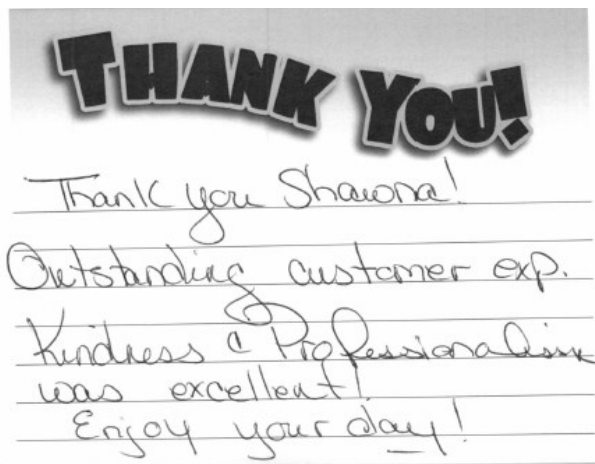 THANK YOU!
Thank you Shawna!
Outstanding customer exp.
Kindness & Professionalism
was excellent!
Enjoy your day!